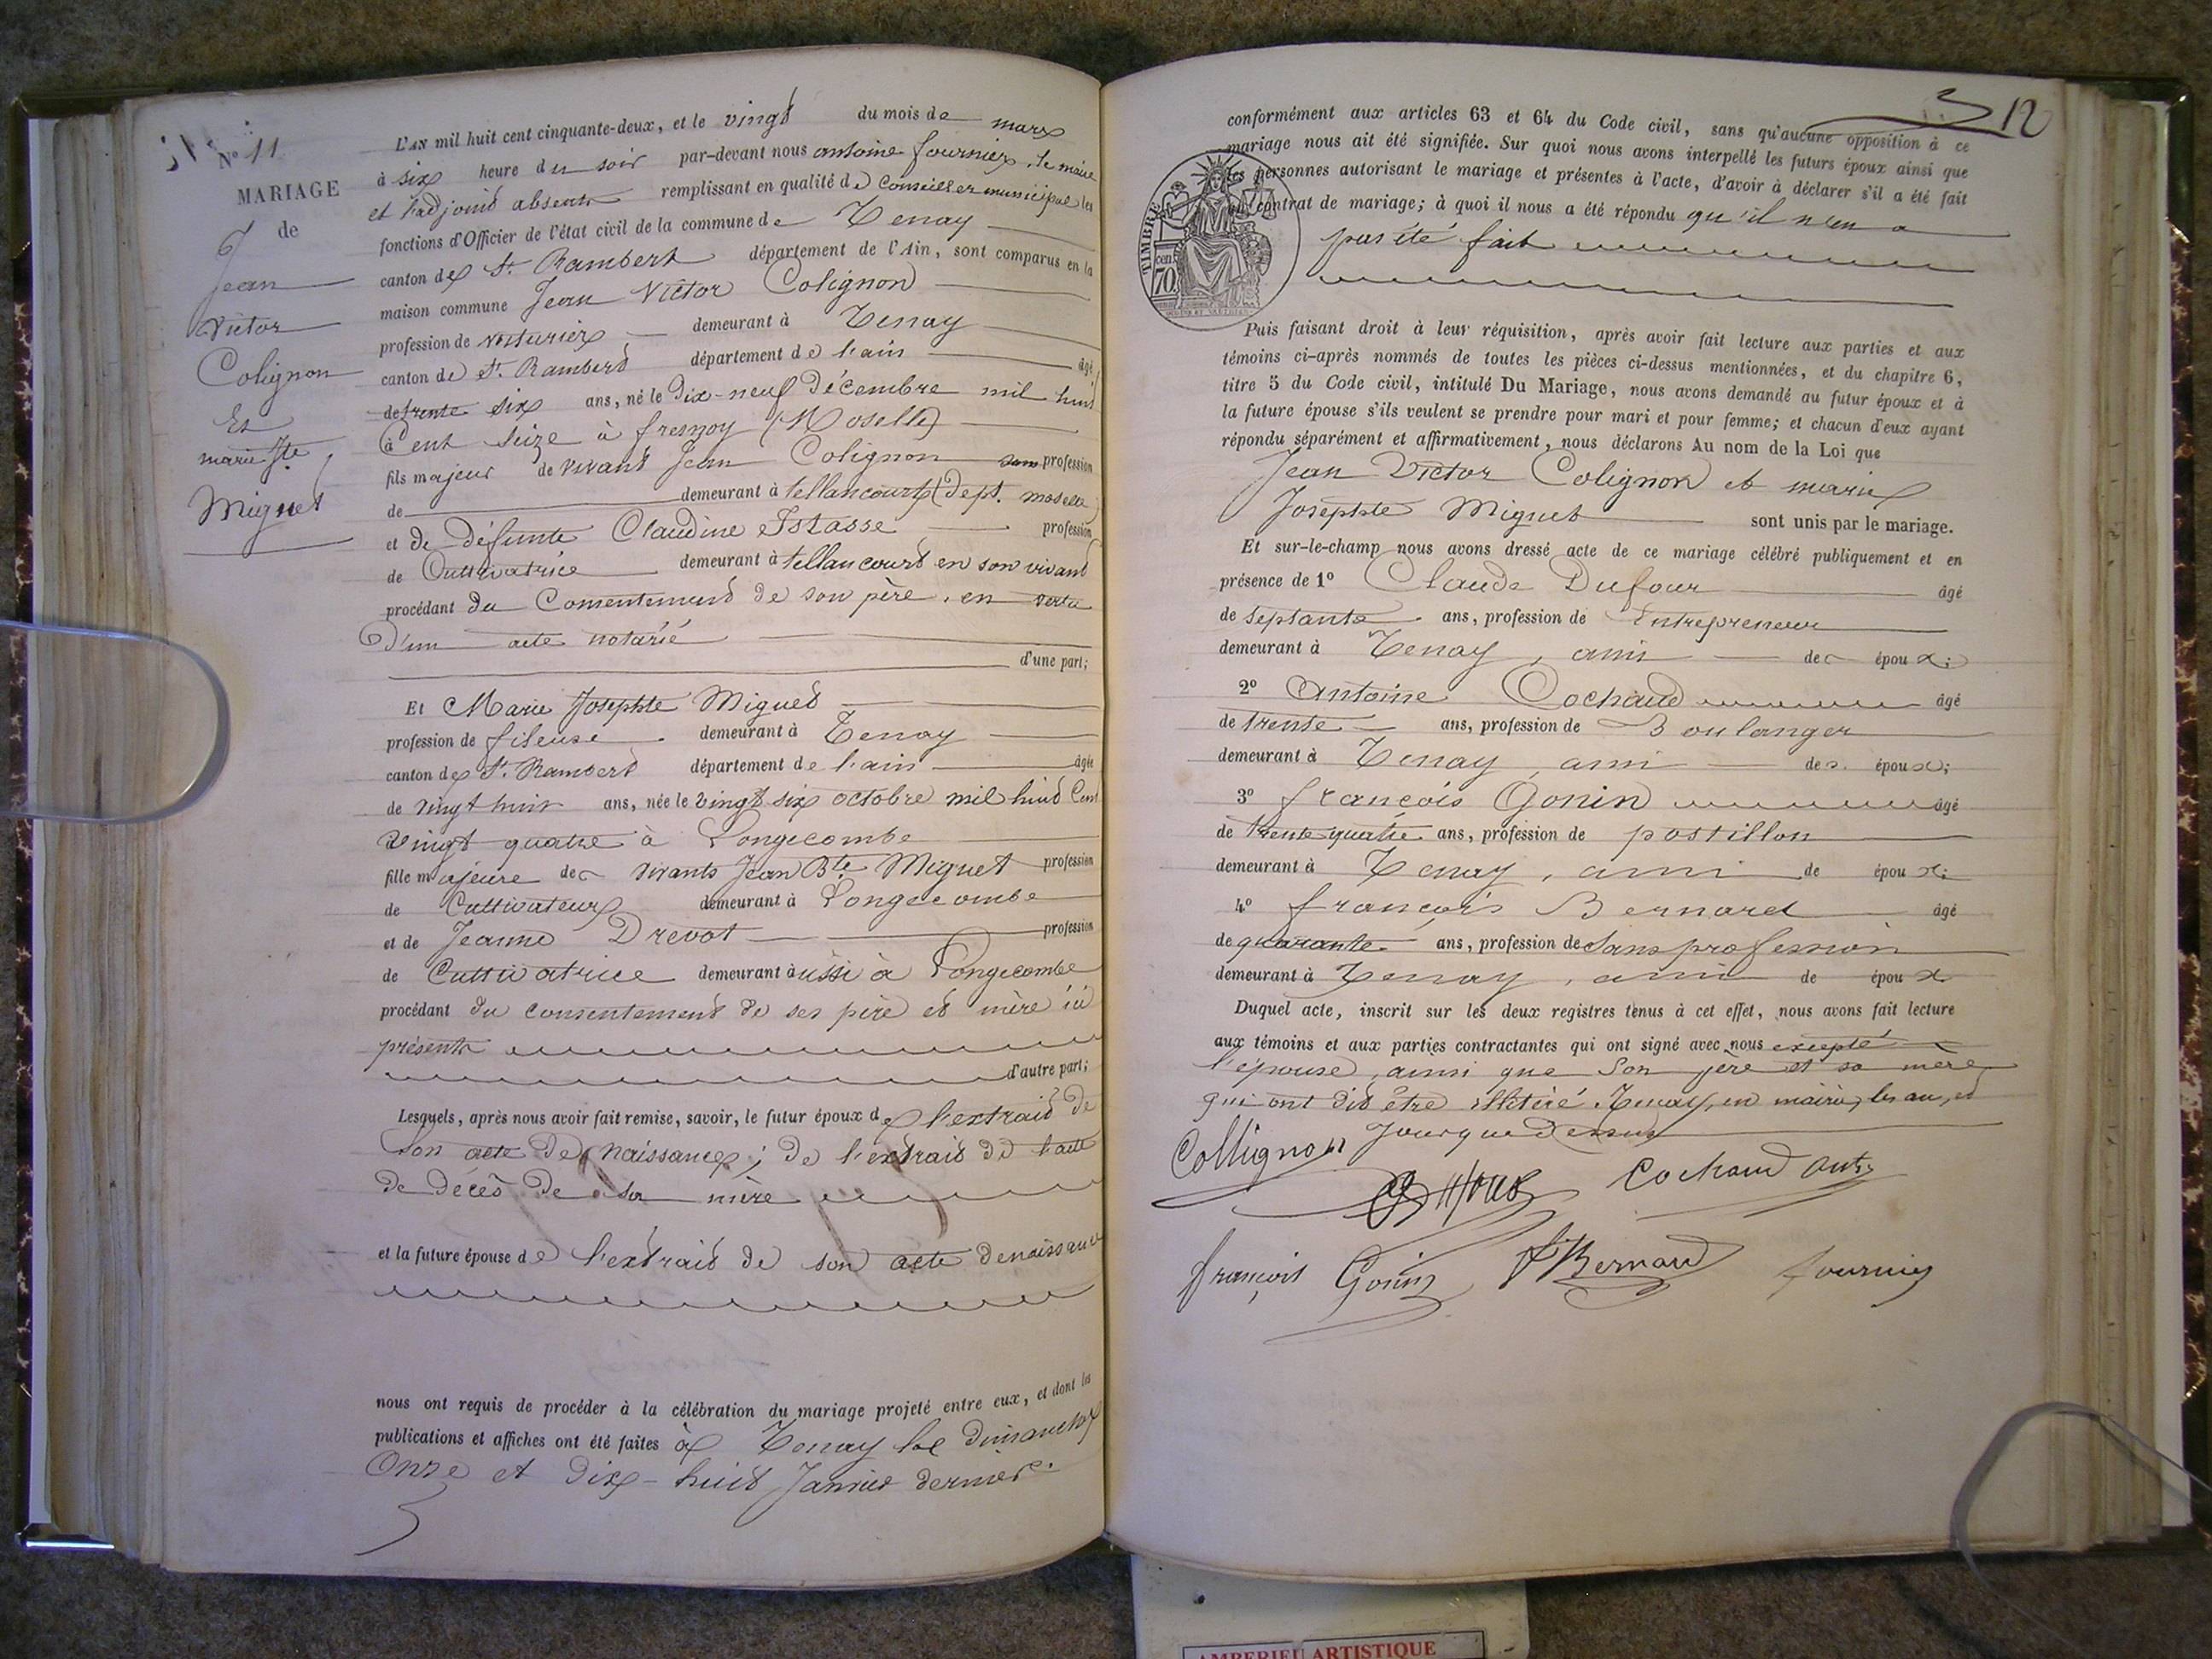 N° 11
MARIAGE
de
Jean
Victor
Colignon
Et
marie Jte
Miguet
L'AN mil huit cent cinquante-deux, et le vingt du mois de mars
à six heure du soir par-devant nous antoine fournier, le maire
et l'adjoint absents remplissant en qualité de Conseiller municipal les
fonctions d'Officier de l'état civil de la commune de Tenay
canton de St. Rambert département de l'Ain, sont comparus en la
maison commune Jean Victor Colignon
profession de voiturier demeurant à Tenay
canton de St. Rambert département de l'ain âgé
de trente six ans, né le Dix-neuf Décembre mil huit
à Cent seize à fresnoy (Moselle)
fils majeur de vivant Jean Colignon sans profession
de demeurant à tellancourt (Dept. moselle)
et de défunte Claudine Istasse profession
de Cultivatrice demeurant à tellancourt en son vivant
procédant du Consentement de son père, en vertu
D'un acte notarié
d'une part;
Et Marie Josephte Miguet
profession de fileuse demeurant à Tenay
canton de St. Rambert département de l'ain âgée
de vingt huit ans, née le vingt six octobre mil huit Cent
vingt quatre à Longecombe
fille majeure de vivants Jean Bte Miguet profession
de Cultivateur demeurant à Longecombe
et de Jeanne Drevot profession
de Cultivatrice demeurant aussi à Longecombe
procédant du consentement de ses père et mère ici
présents
d'autre part;
Lesquels, après nous avoir fait remise, savoir, le futur époux de l'extrait de
Son acte De Naissance; De l'extrait De l'acte
De Décès De sa mère
et la future épouse de l'extrait de son acte De naissance
nous ont requis de procéder à la célébration du mariage projeté entre eux, et dont les
publications et affiches ont été faites à Tenay les Dimanches
Onze et Dix-huit Janvier dernier.
12
conformément aux articles 63 et 64 du Code civil, sans qu'aucune opposition à ce
mariage nous ait été signifiée. Sur quoi nous avons interpellé les futurs époux ainsi que
les personnes autorisant le mariage et présentes à l'acte, d'avoir à déclarer s'il a été fait
contrat de mariage; à quoi il nous a été répondu qu'il n'en a
pas été fait
TIMBRE
cen.
70
Puis faisant droit à leur réquisition, après avoir fait lecture aux parties et aux
témoins ci-après nommés de toutes les pièces ci-dessus mentionnées, et du chapitre 6,
titre 5 du Code civil, intitulé Du Mariage, nous avons demandé au futur époux et à
la future épouse s'ils veulent se prendre pour mari et pour femme; et chacun d'eux ayant
répondu séparément et affirmativement, nous déclarons Au nom de la Loi que
Jean Victor Colignon et marie
Josephte Miguet sont unis par le mariage.
Et sur-le-champ nous avons dressé acte de ce mariage célébré publiquement et en
présence de 1° Claude Dufour âgé
de septante ans, profession de Entrepreneur
demeurant à Tenay, ami des époux;
2° Antoine Cochaud âgé
de trente ans, profession de Boulanger
demeurant à Tenay, ami des époux;
3° françois Gonin âgé
de trente quatre ans, profession de postillon
demeurant à Tenay, ami de époux;
4° françois Bernard âgé
de quarante ans, profession de Sans profession
demeurant à Tenay, ami de époux
Duquel acte, inscrit sur les deux registres tenus à cet effet, nous avons fait lecture
aux témoins et aux parties contractantes qui ont signé avec nous excepté
l'épouse, ainsi que son père et sa mère
qui ont dit être illitéré. Tenay, en mairie, les an, et
Jour que Dessus
Collignon
Cochaud Ant.
françois Gonin
f Bernard
fournier
AMBERIEU ARTISTIQUE